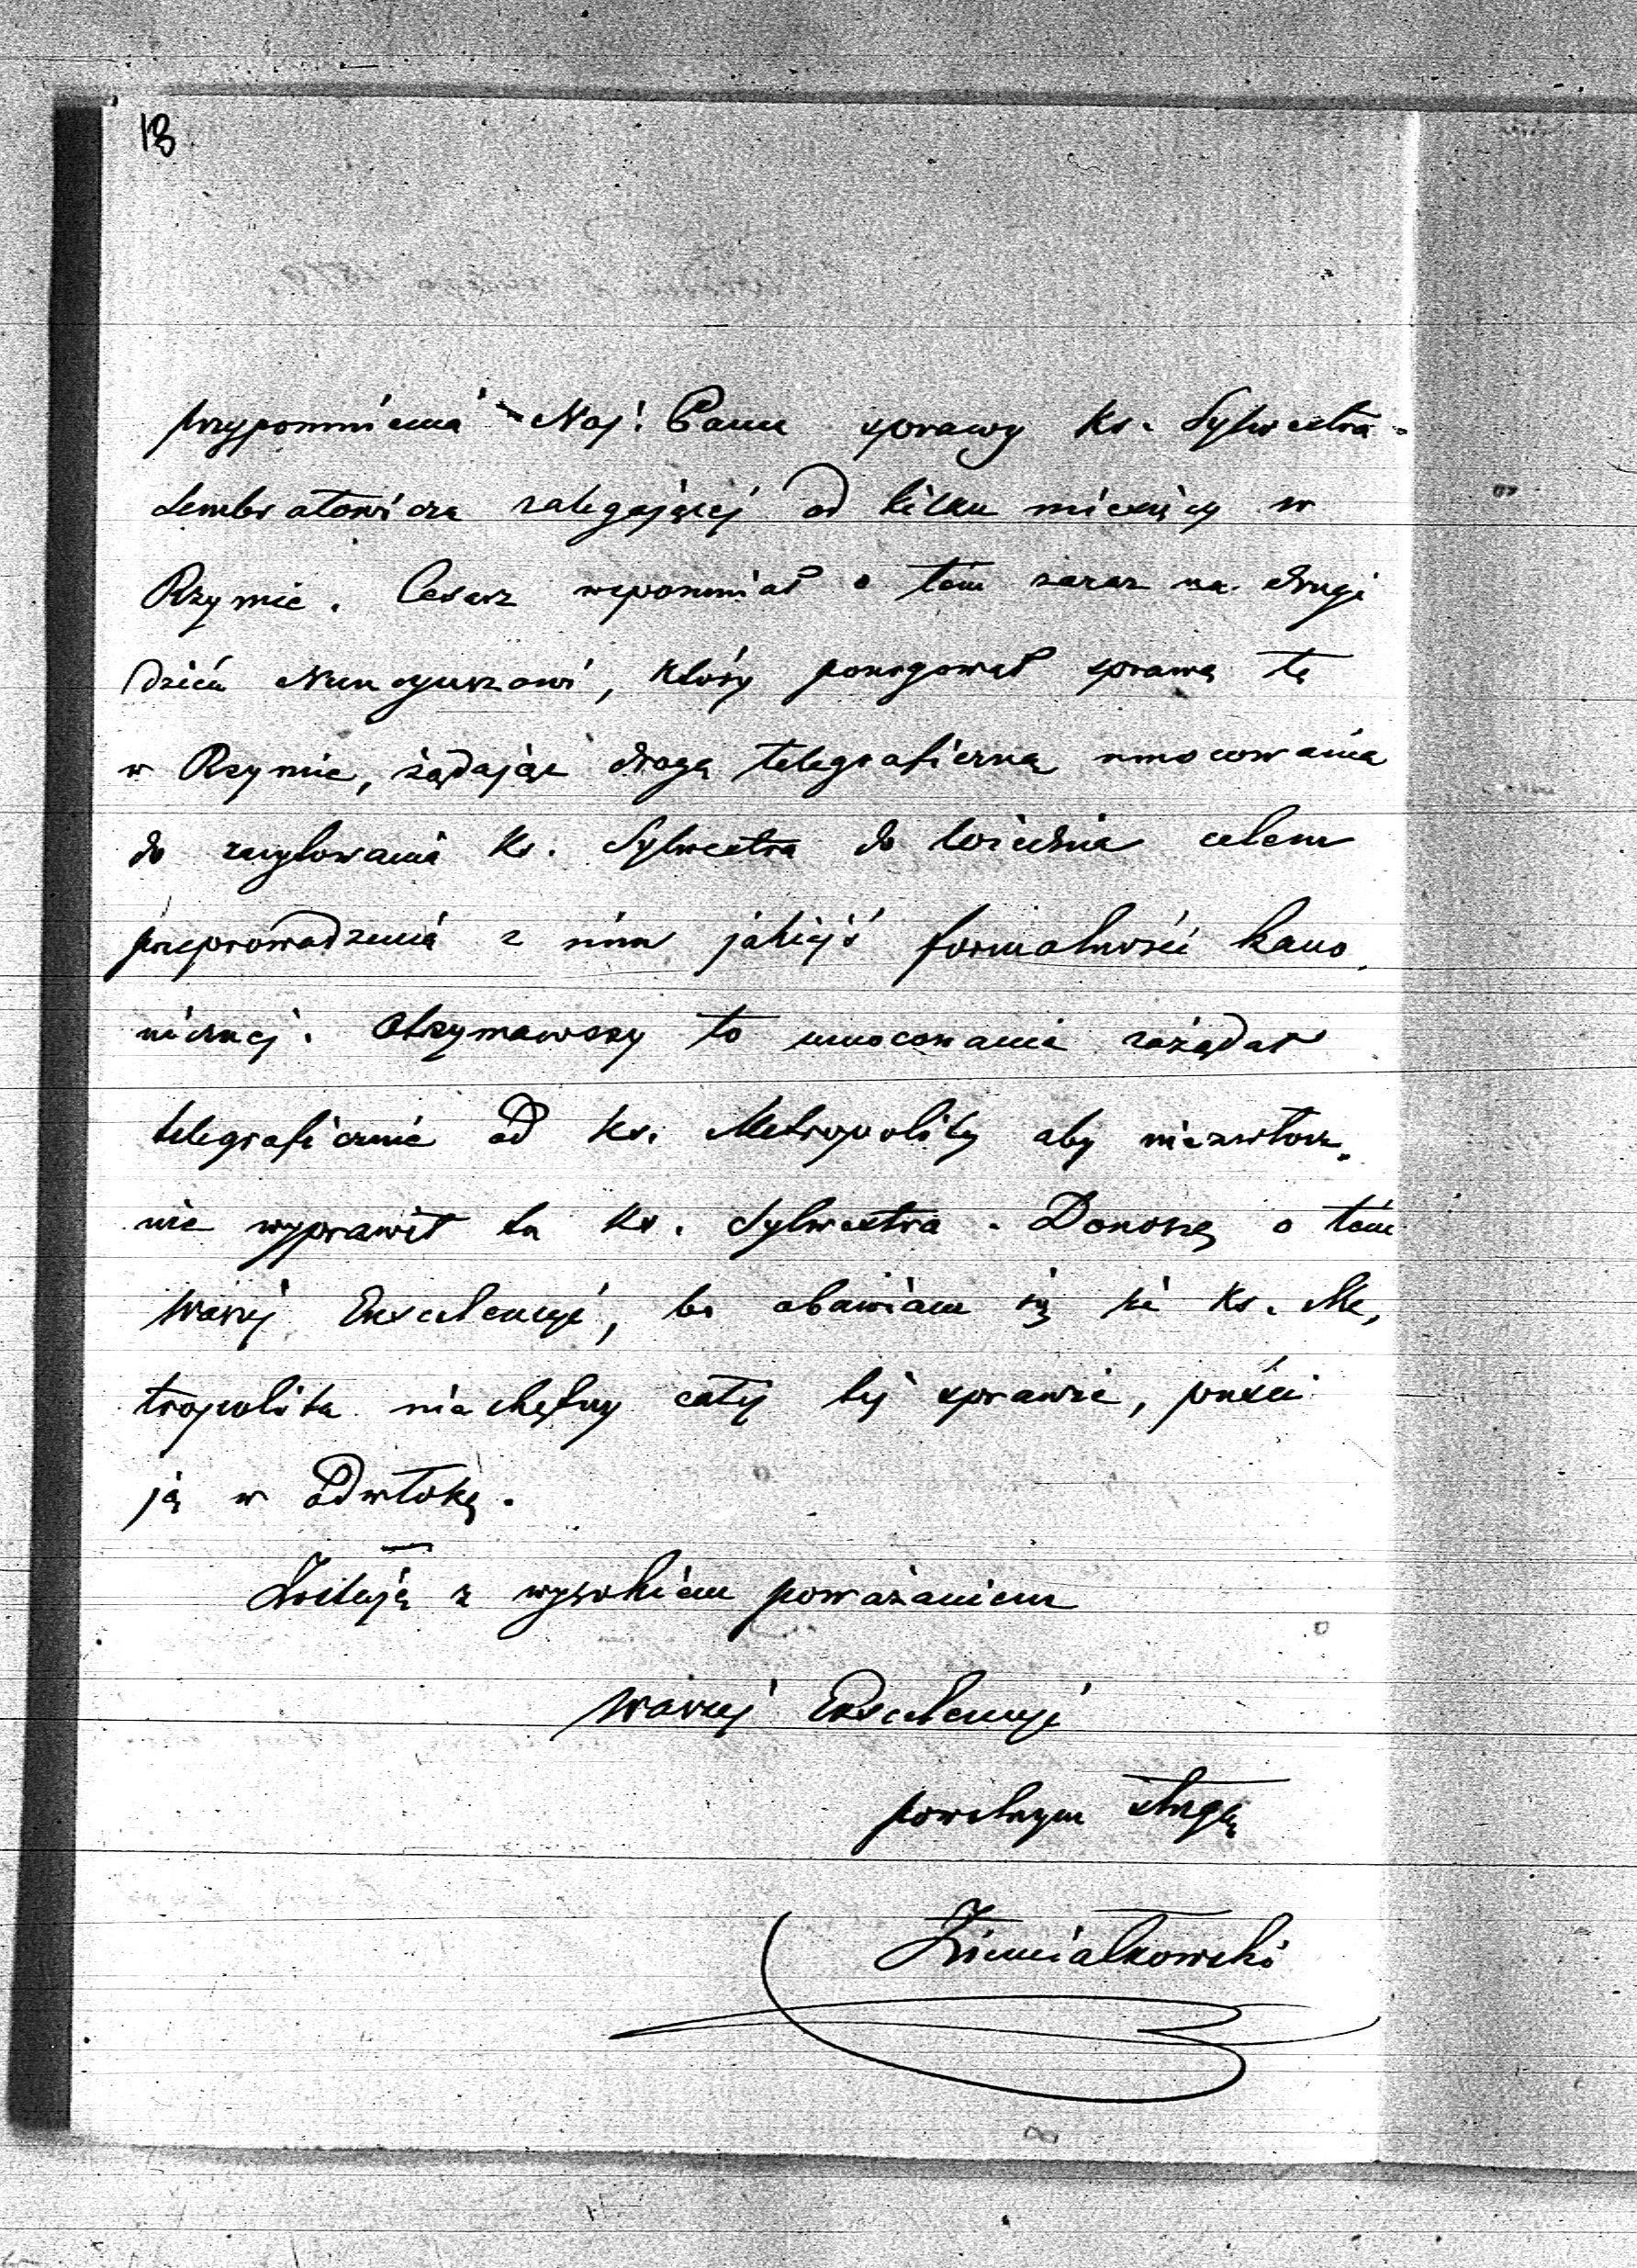 18
przypomnienia Naj. Panu sprawy ks. Sylwestra
Sembratowicza zalegającej od kilku miesięcy w
Rzymie. Cesarz wspomniał o tém zaraz na drugi
dzień Nuncyuszowi, który ponaglał sprawę tę
w Rzymie, żądając drogą telegraficzną umocowania
do zacytowania ks. Sylwestra do Wiednia celem
przeprowadzenia z nim jakiejś formalności kano
nicznej. Otrzymawszy to umocowanie zażądał
telegraficznie od ks. Metropolity aby niezwłocz
nie wyprawił tu ks. Sylwestra. Donoszę o tém
Waszej Excelencyi, bo obawiam się że ks. Me,
tropolita niechętny całej tej sprawie, puści
ją w odwłokę.
Zostaję z wysokiem poważaniem
Waszej Excelencyi
powolnym sługą
Ziemiałkowski